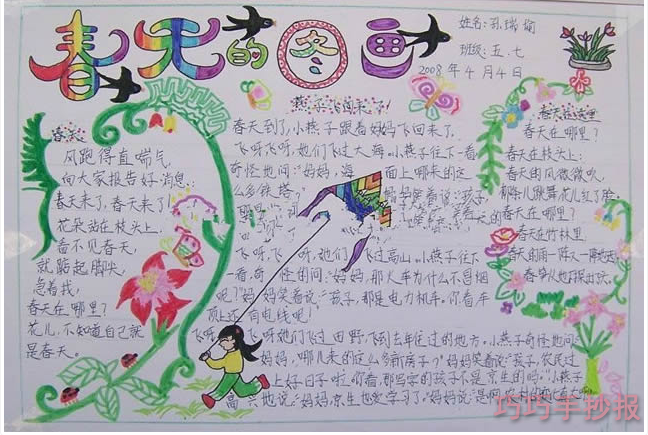 春天的图画
姓名:孙瑞瑜
班级:五.七
2008年4月4日
春天
风跑得直喘气
向大家报告好消息:
春天来了,春天来了!
花朵站在枝头上,
看不见春天,
就踮起脚尖,
急着找,
春天在哪里?
花儿,不知道自己就
是春天。
燕子飞回来了!
春天到了,小燕子跟着妈妈飞回来了.
飞呀飞呀,她们飞过大海.小燕子往下一看
奇怪地问:"妈妈,海面上哪来的这
么多铁塔?"
妈妈笑着说:"孩子,
飞呀,飞呀,她们飞过高山.小燕子往下
一看,奇怪的问:"妈妈,那火车为什么不冒烟
呢?"妈妈笑着说:"孩子,那是电力机车。你看车
顶上还有电线呢!"
飞呀飞呀,她们飞过田野,飞到去年住过的地方。小燕子奇怪地问:
妈妈,哪儿来的这么多新房子?"妈妈笑着说:"孩子,农民过
上好日子啦,你看,那写字的孩子不是京生的吗?"小燕子
高兴地说:"妈妈,京生也学习了."妈妈说
春天在这里
春天在哪里?
春天在枝头上:
春天的风微微吹,
柳条儿跳舞花儿红了脸
春天在哪里?
春天在竹林里
春天的雨一阵又一阵
巧巧手抄报